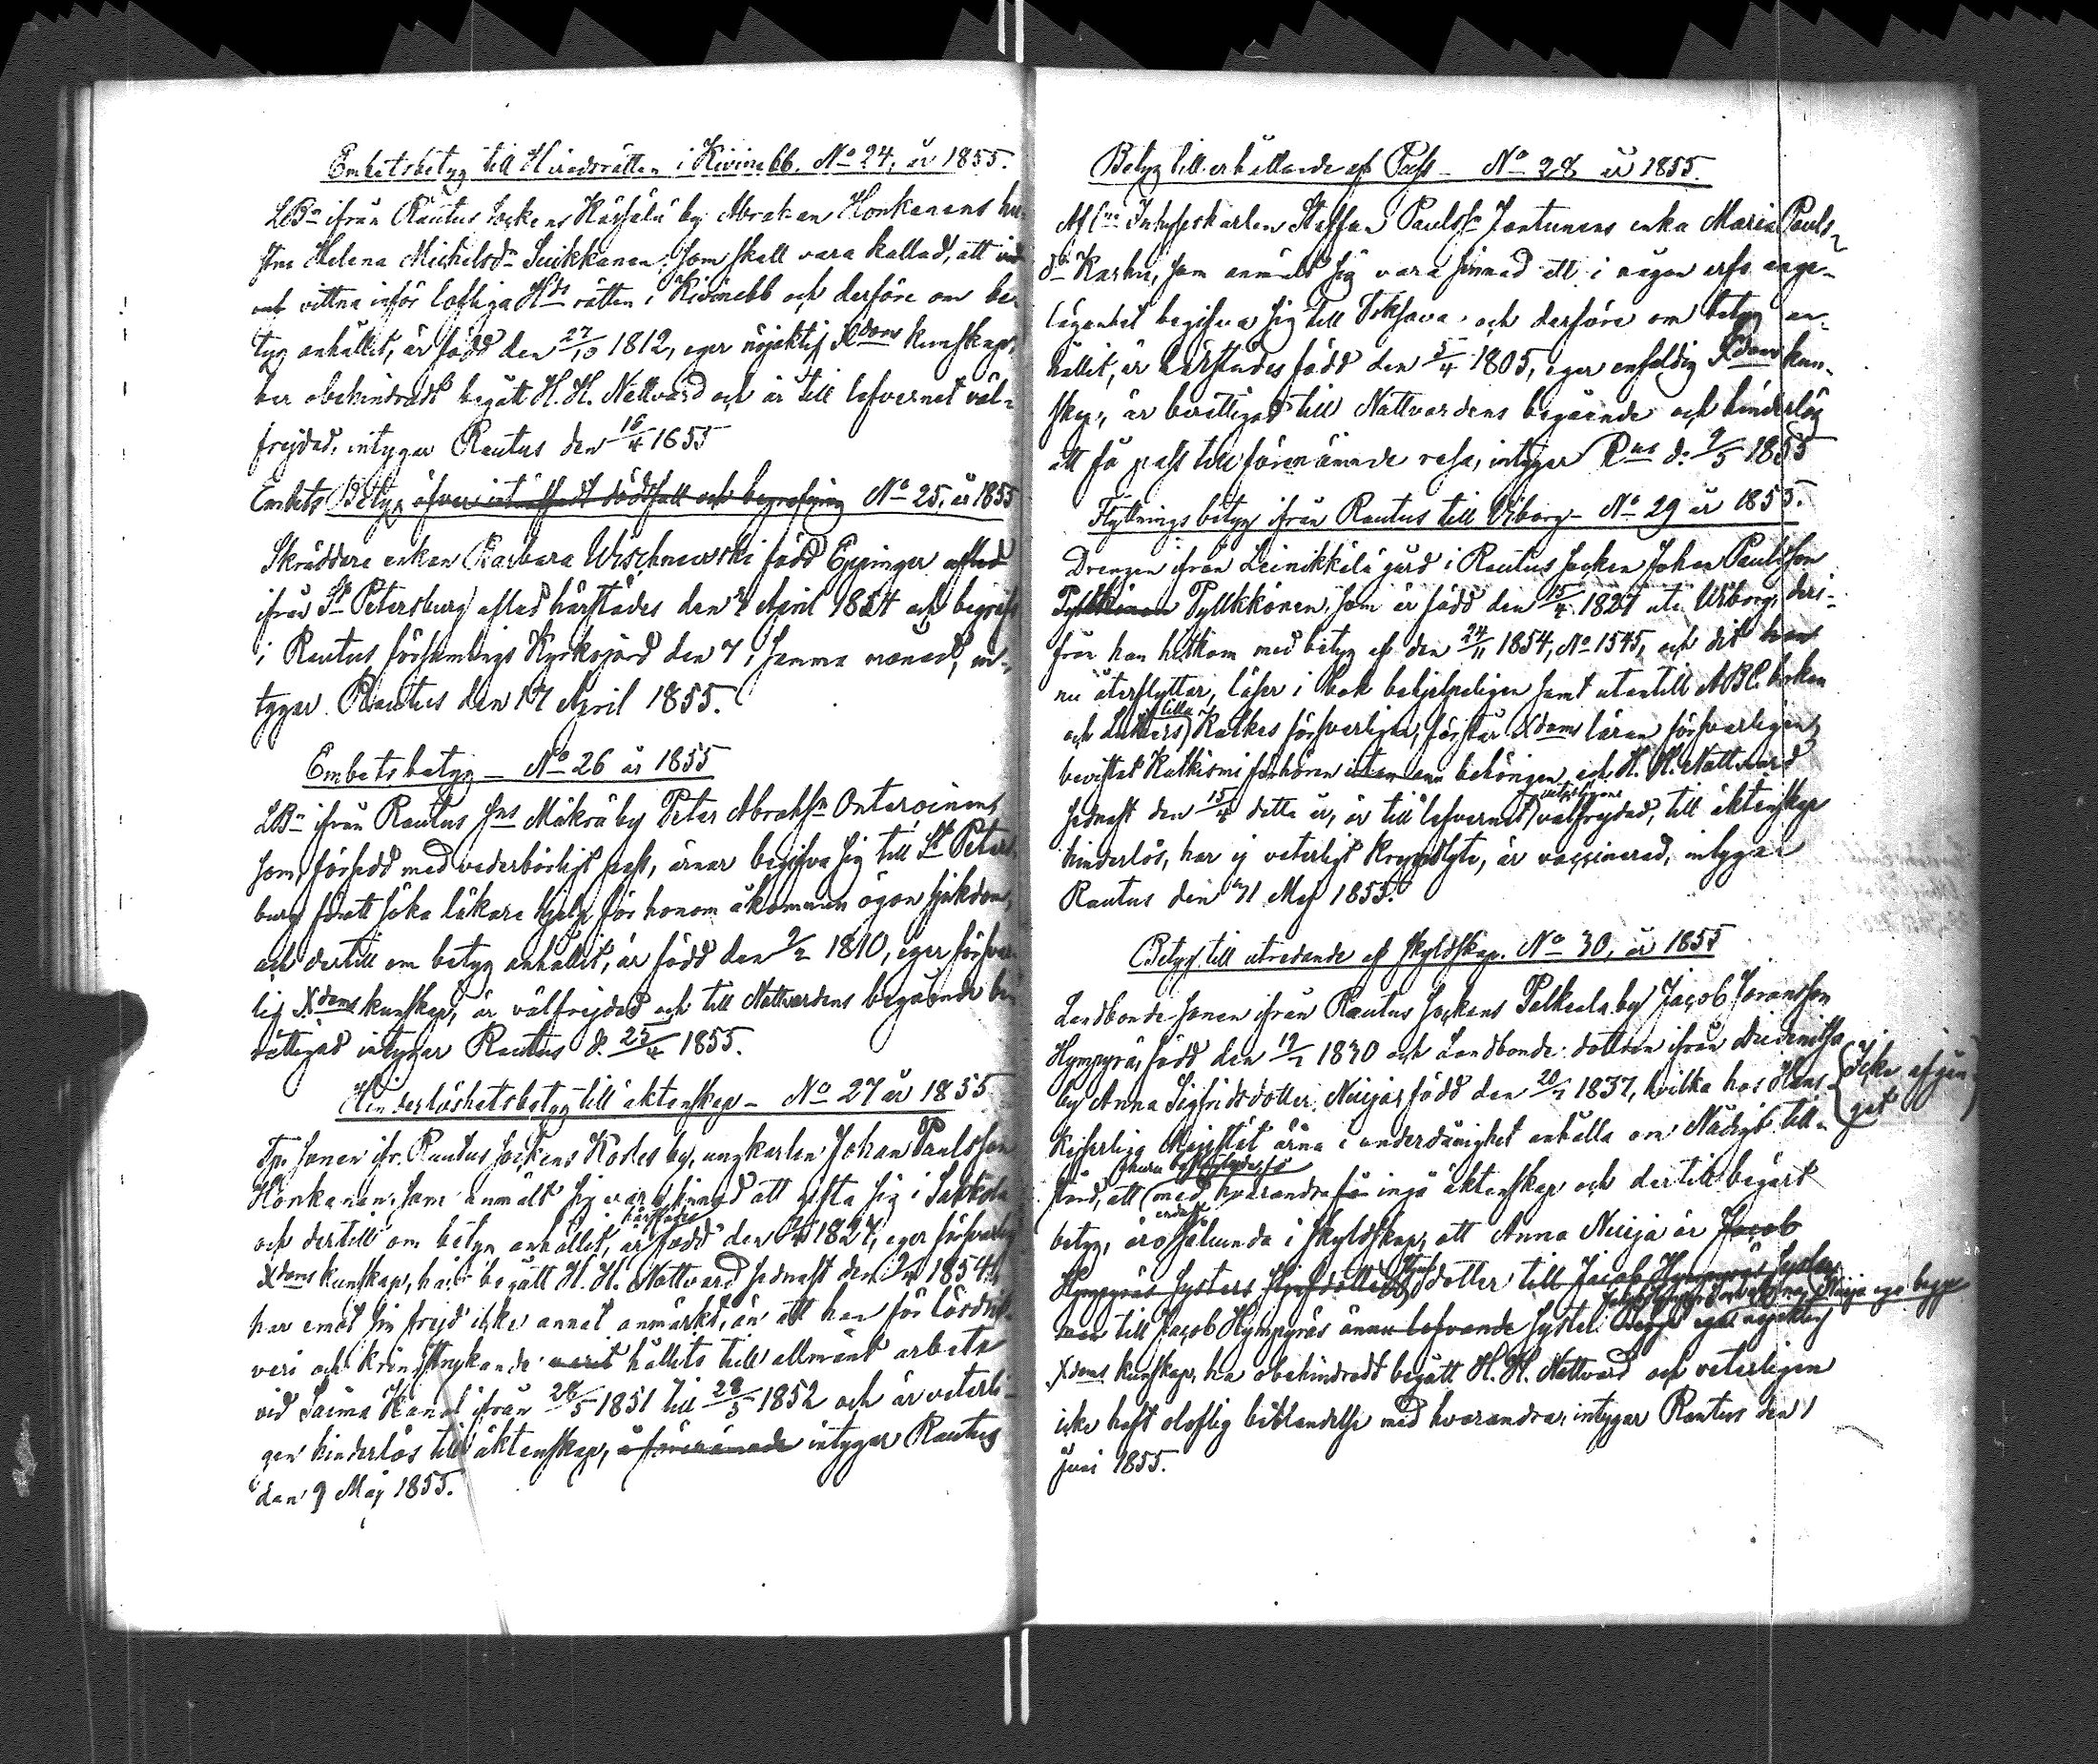 Embetsbetyg till Häradsrätten i Kivinebb. No 24, år 1855.
LBn ifrån Rautus Sockens Käshälä by Abraham Honkanens hu-
stru Helena Michelsdr Suikkanen, som skall vara kallad, att
vittna inför lofliga Hds rätten i Kivinebb och derföre om be-
tyg anhållit, är född den 27/10 1812, eger nöjaktig Xdoms kunskap,
har obehindradt begått H. H. Nattvard och är till lefvernet väl-
frejdad, intygar Rautus den 16/4 1855
Embets Betyg öfver dödsfall och begrafning No 25. år 1855
Skräddare enkan Barbara Wischnewski född Eppinger
ifrån St Petersburg afled härstädes den April 1854 och begrofs
i Rautus församlings Kyrkogård den 7 i samma månad, in-
tygar Rautus den 17 April 1855.
Embetsbetyg — No 26 år 1855
LBn ifrån Rautus Sns Mäkrä by Peter Abrahsn Ontronen,
som, försedd med vederbörligt pass, ärnar begifva sig till St Peters-
burg för att söka läkare hjelp för honom åkommen ögon sjukdom,
och dertill om betyg anhållit, är född den 9/2 1810, eger försvar-
lig Xdoms kunskap, är välfrejdad och till Nattvardens begående be-
rättigad intygar Rautus d. 25/4 1855.
Hinderlöshetsbetyg till äktenskap — No 27 år 1855
Tp. Sonen ifr. Rautus Sockens Kosles by, ungkarlen Johan Paulsson
Honkanen, som anmält sig vara sinnad att gifta sig i Sakkola
härstädes
och dertill om betyg anhållit, är född den 1827, eger försvarlig
Xdoms kunskap, har begått H. H. Nattvard sednast den 2/4 1854,
har emot sin frejd icke annat anmärkt, än att han för lösdrif-
veri och kringstrykande varit hållits till allmänt arbete
vid Saima Kanal ifrån 28/5 1851 till 28/5 1852 och är veterli-
gen hinderlös till äktenskap, intygar Rautus
den 9 Maj 1855.
Betyg till erhållande af Pass — No 28 år 1855.
Aflne Inhyseskarlen Staffan Paulssn Jantunens enka Maria Pauls-
dr Karhu, som anmält sig vara sinnad att i någon arfs ange-
lägenhet begifva sig till Toksova och derföre om betyg an-
hållit, är härstädes född den 5/4 1805, eger enfaldig Xdoms kun-
skap, är berättigad till Nattvardens begående och hinderlös
att få pass till förenämnde resa, intygar Rus d. 9/5 1855
Flyttningsbetyg ifrån Rautus till Viborg — No 29 år 1855.
Drengen ifrån Leinikkälä gård i Rautus Socken Johan Paulsson
Pyllkkönen, som är född den 15/4 1827 uti Wiborg, deri-
från han hitkom med betyg af den 24/11 1854, No 1545, och dit han
nu återflyttar, läser i bok behjelpeligen samt utantill ABC boken
lilla
och Luthers Katkes försvarligen, förstår Xdoms läran försvarligen,
bevistat Katkismi förhören behörigen, och H. H. Nattvard
sednast den 15/4 detta år, är till lefvernet välfrejdad, till äktenskap
hinderlös, har ej veterligt kroppslyte, är vaccinerad, intygar
Rautus den 31 Maj 1855.
Betyg till utredande af skyldskap. No 30, år 1855
Landbonde sonen ifrån Rautus Sockens Palkeala by Jacob Göransson
Hympyrä, född den 19/2 1830 och Landbonde dottren ifrån
by Anna Sigfridsdotter Nuija, född den 20/2 1837, hvilka hos Hans
(Icke afgån-
get)
Kejserliga Majestät ärna i underdånighet anhålla om Nådigt till-
stånd, att med hvarandra få ingå äktenskap och dertill begärt
betyg, äro sålunda i skyldskap, att Anna Nuija är Jacob
Hympyräs systers dotter till Jacob Hympyräs syster
till Jacob Hympyräs ännu lefvande syster.
Xdoms kunskap, ha obehindradt begått H. H. Nattvard och veterligen
icke haft oloflig beblandelse med hvarandra, intygar Rautus den 1
Juni 1855.